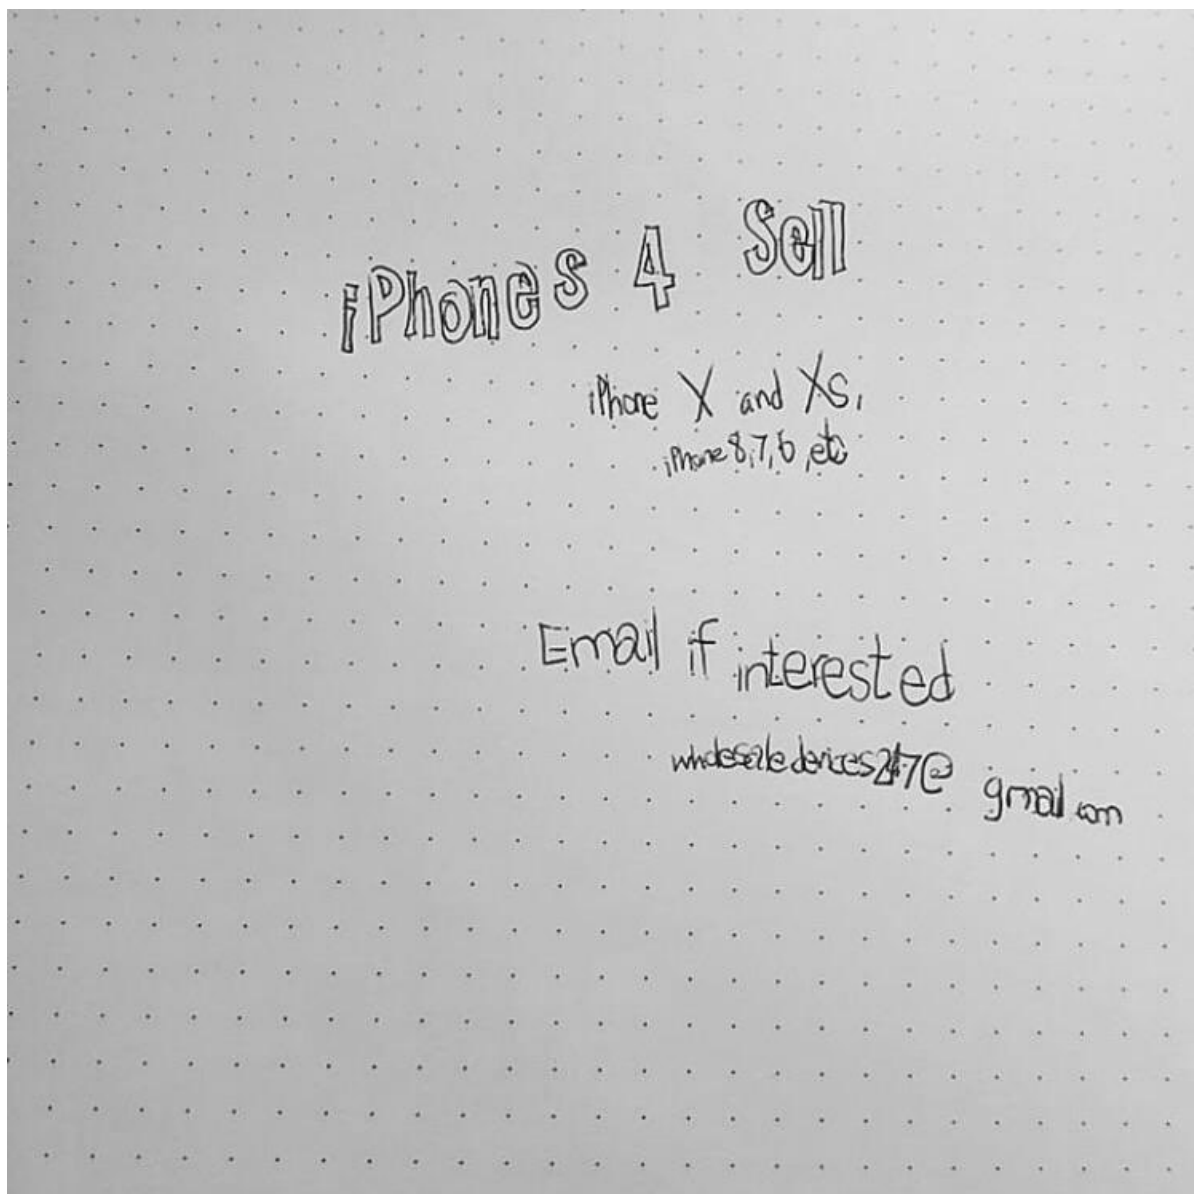 iPhones 4 Sell
iPhone X and XS,
iPhone 8,7,6,etc
Email if interested
wholesaledevices247@gmail.com